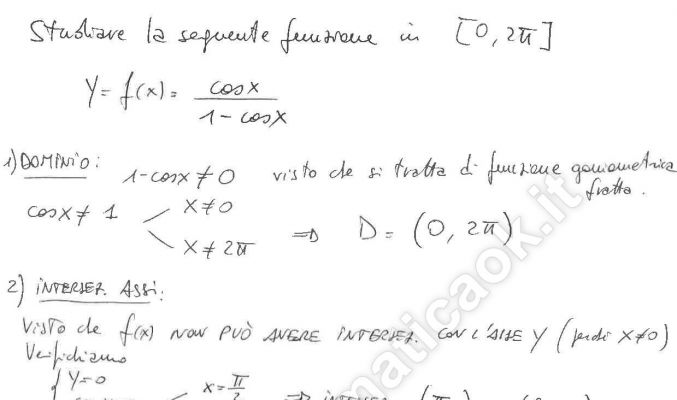 Studiare la seguente funzione in [0, 2π]
y = f(x) = cosx / 1 - cosx
1) DOMINIO: 1 - cosx ≠ 0 visto che si tratta di funzione goniometrica fratta.
cosx ≠ 1 x ≠ 0
x ≠ 2π ⇒ D = (0, 2π)
2) INTERSEZ. ASSI:
Visto che f(x) NON PUÒ AVERE INTERSEZ. CON L'ASSE Y (perché x ≠ 0)
Verifichiamo
y = 0 x = π/2
maticaok.it